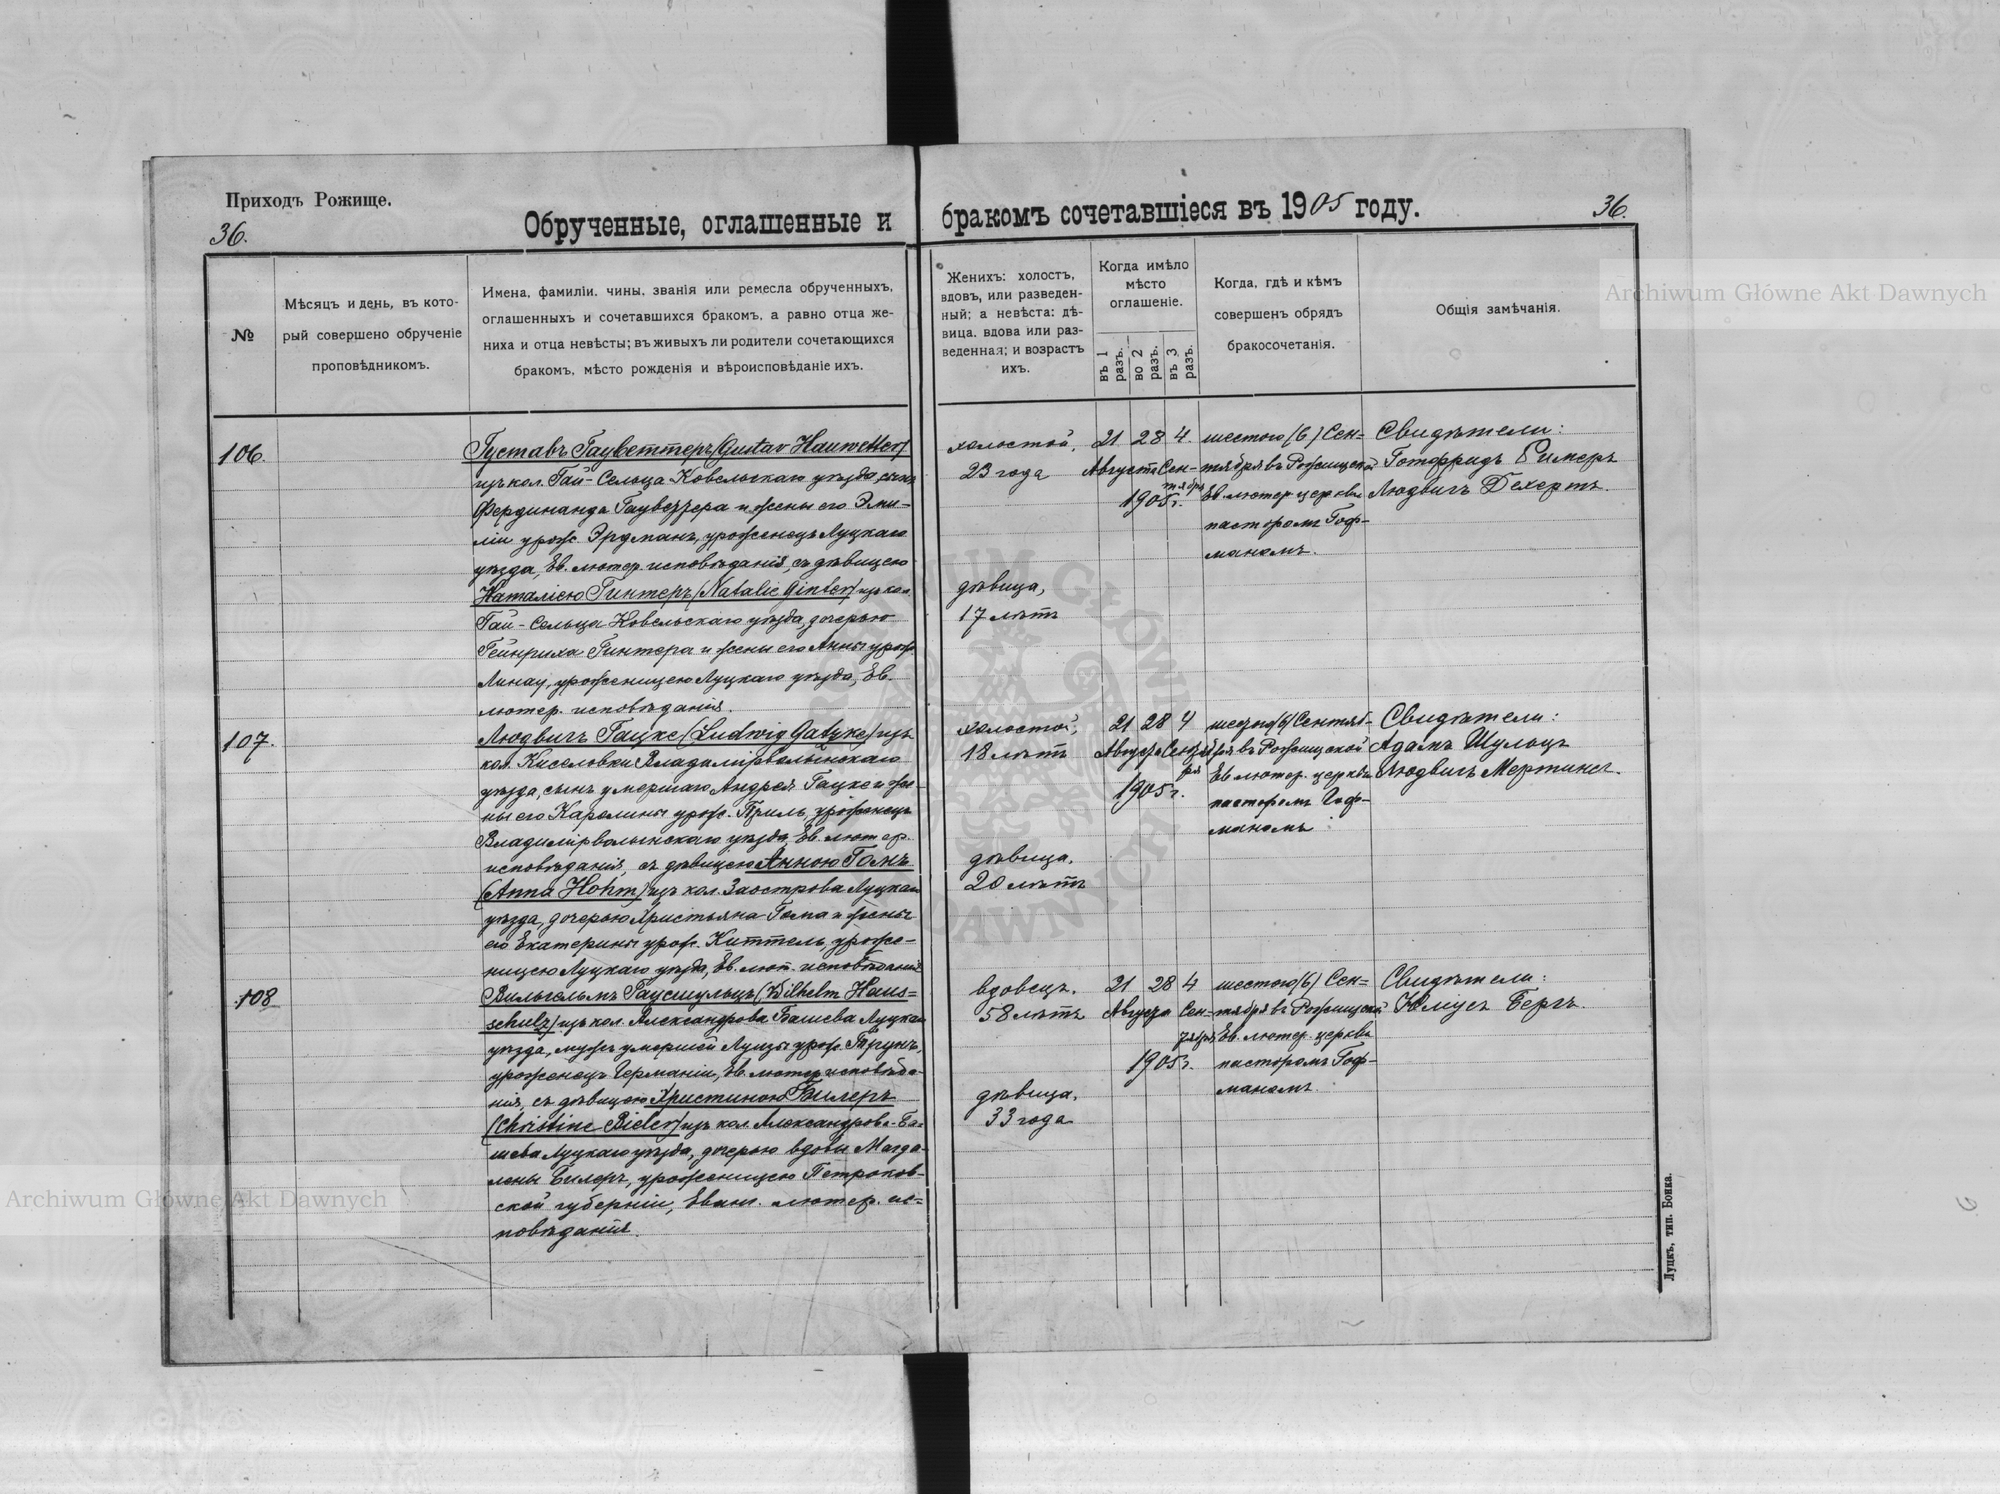 Приходъ Рожище.
36.
Обрученные, оглашенные и бракомъ сочетавшіеся въ 1905 году.
36.
№
Мѣсяцъ и день, въ кото-
рый совершено обрученіе
проповѣдникомъ.
Имена, фамиліи, чины, званія или ремесла обрученныхъ,
оглашенныхъ и сочетавшихся бракомъ, а равно отца же-
ниха и отца невѣсты; въ живыхъ ли родители сочетающихся
бракомъ, мѣсто рожденія и вѣроисповѣданіе ихъ.
Женихъ: холостъ,
вдовъ, или разведен-
ный; а невѣста: дѣ-
вица, вдова или раз-
веденная; и возрастъ
ихъ.
Когда имѣло
мѣсто
оглашеніе.
въ 1 разъ.
во 2 разъ.
въ 3 разъ.
Когда, гдѣ и кѣмъ
совершенъ обрядъ
бракосочетанія.
Общія замѣчанія.
106.
Густавъ Гауветтеръ (Gustav Hauwetter)
изъ кол. Гай-Сельца Ковельскаго уѣзда, сынъ
Фердинанда Гауветтера и жены его Эми-
ліи урож. Эрдманъ, уроженецъ Луцкаго
уѣзда, Ев. лютер. исповѣданія, съ дѣвицею
Наталіею Гинтеръ (Natalie Ginter) изъ кол.
Гай-Сельца Ковельскаго уѣзда, дочерью
Гейнриха Гинтера и жены его Анны урож.
Линау, уроженицею Луцкаго уѣзда, Ев.
лютер. исповѣданія.
холостой,
23 года
дѣвица,
17 лѣтъ
21 28 4.
Августа Сен-
тября
1905 г.
шестого (6) Сен-
тября въ Рожищской
Ев. лютер. церкви
пасторомъ Гоф-
маномъ.
Свидѣтели:
Готфридъ Римеръ
Людвигъ Дехертъ.
107.
Людвигъ Гацке (Ludwig Gatzke) изъ
кол. Киселовки Владимірволынскаго
уѣзда, сынъ умершаго Андрея Гацке и же-
ны его Каролины урож. Приль, уроженецъ
Владимірволынскаго уѣзда, Ев. лютер.
исповѣданія, съ дѣвицею Анною Гомъ
(Anna Hohm) изъ кол. Заострова Луцкаго
уѣзда, дочерью Христьяна Гома и жены
его Екатерины урож. Киттель, уроже-
ницею Луцкаго уѣзда, Ев. лют. исповѣданія
холостой,
18 лѣтъ
дѣвица,
20 лѣтъ
21 28 4
Августа Сентяб-
ря
1905 г.
шестого (6) Сентяб-
ря въ Рожищской
Ев. лютер. церкви
пасторомъ Гоф-
маномъ
Свидѣтели:
Адамъ Шульцъ
Людвигъ Мертинсъ.
108
Вильгельмъ Гаусшульцъ (Wilhelm Haus-
schulz) изъ кол. Александрова Башева Луцкаго
уѣзда, мужъ умершей Луизы урож. Трунъ,
уроженецъ Германіи, Ев. лютер. исповѣда-
нія, съ дѣвицею Христиною Билеръ
(Christine Bieler) изъ кол. Александрова-Ба-
шева Луцкаго уѣзда, дочерью вдовы Магда-
лены Билеръ, уроженицею Петроков-
ской губерніи, Еванг. лютер. ис-
повѣданія.
вдовецъ,
58 лѣтъ
дѣвица,
33 года
21 28 4
Августа Сен-
тября
1905 г.
шестого (6) Сен-
тября въ Рожищской
Ев. лютер. церкви
пасторомъ Гоф-
маномъ
Свидѣтели:
Юліусъ Бергъ.
Луцкъ, тип. Бонка.
Archiwum Główne Akt Dawnych
Archiwum Główne Akt Dawnych